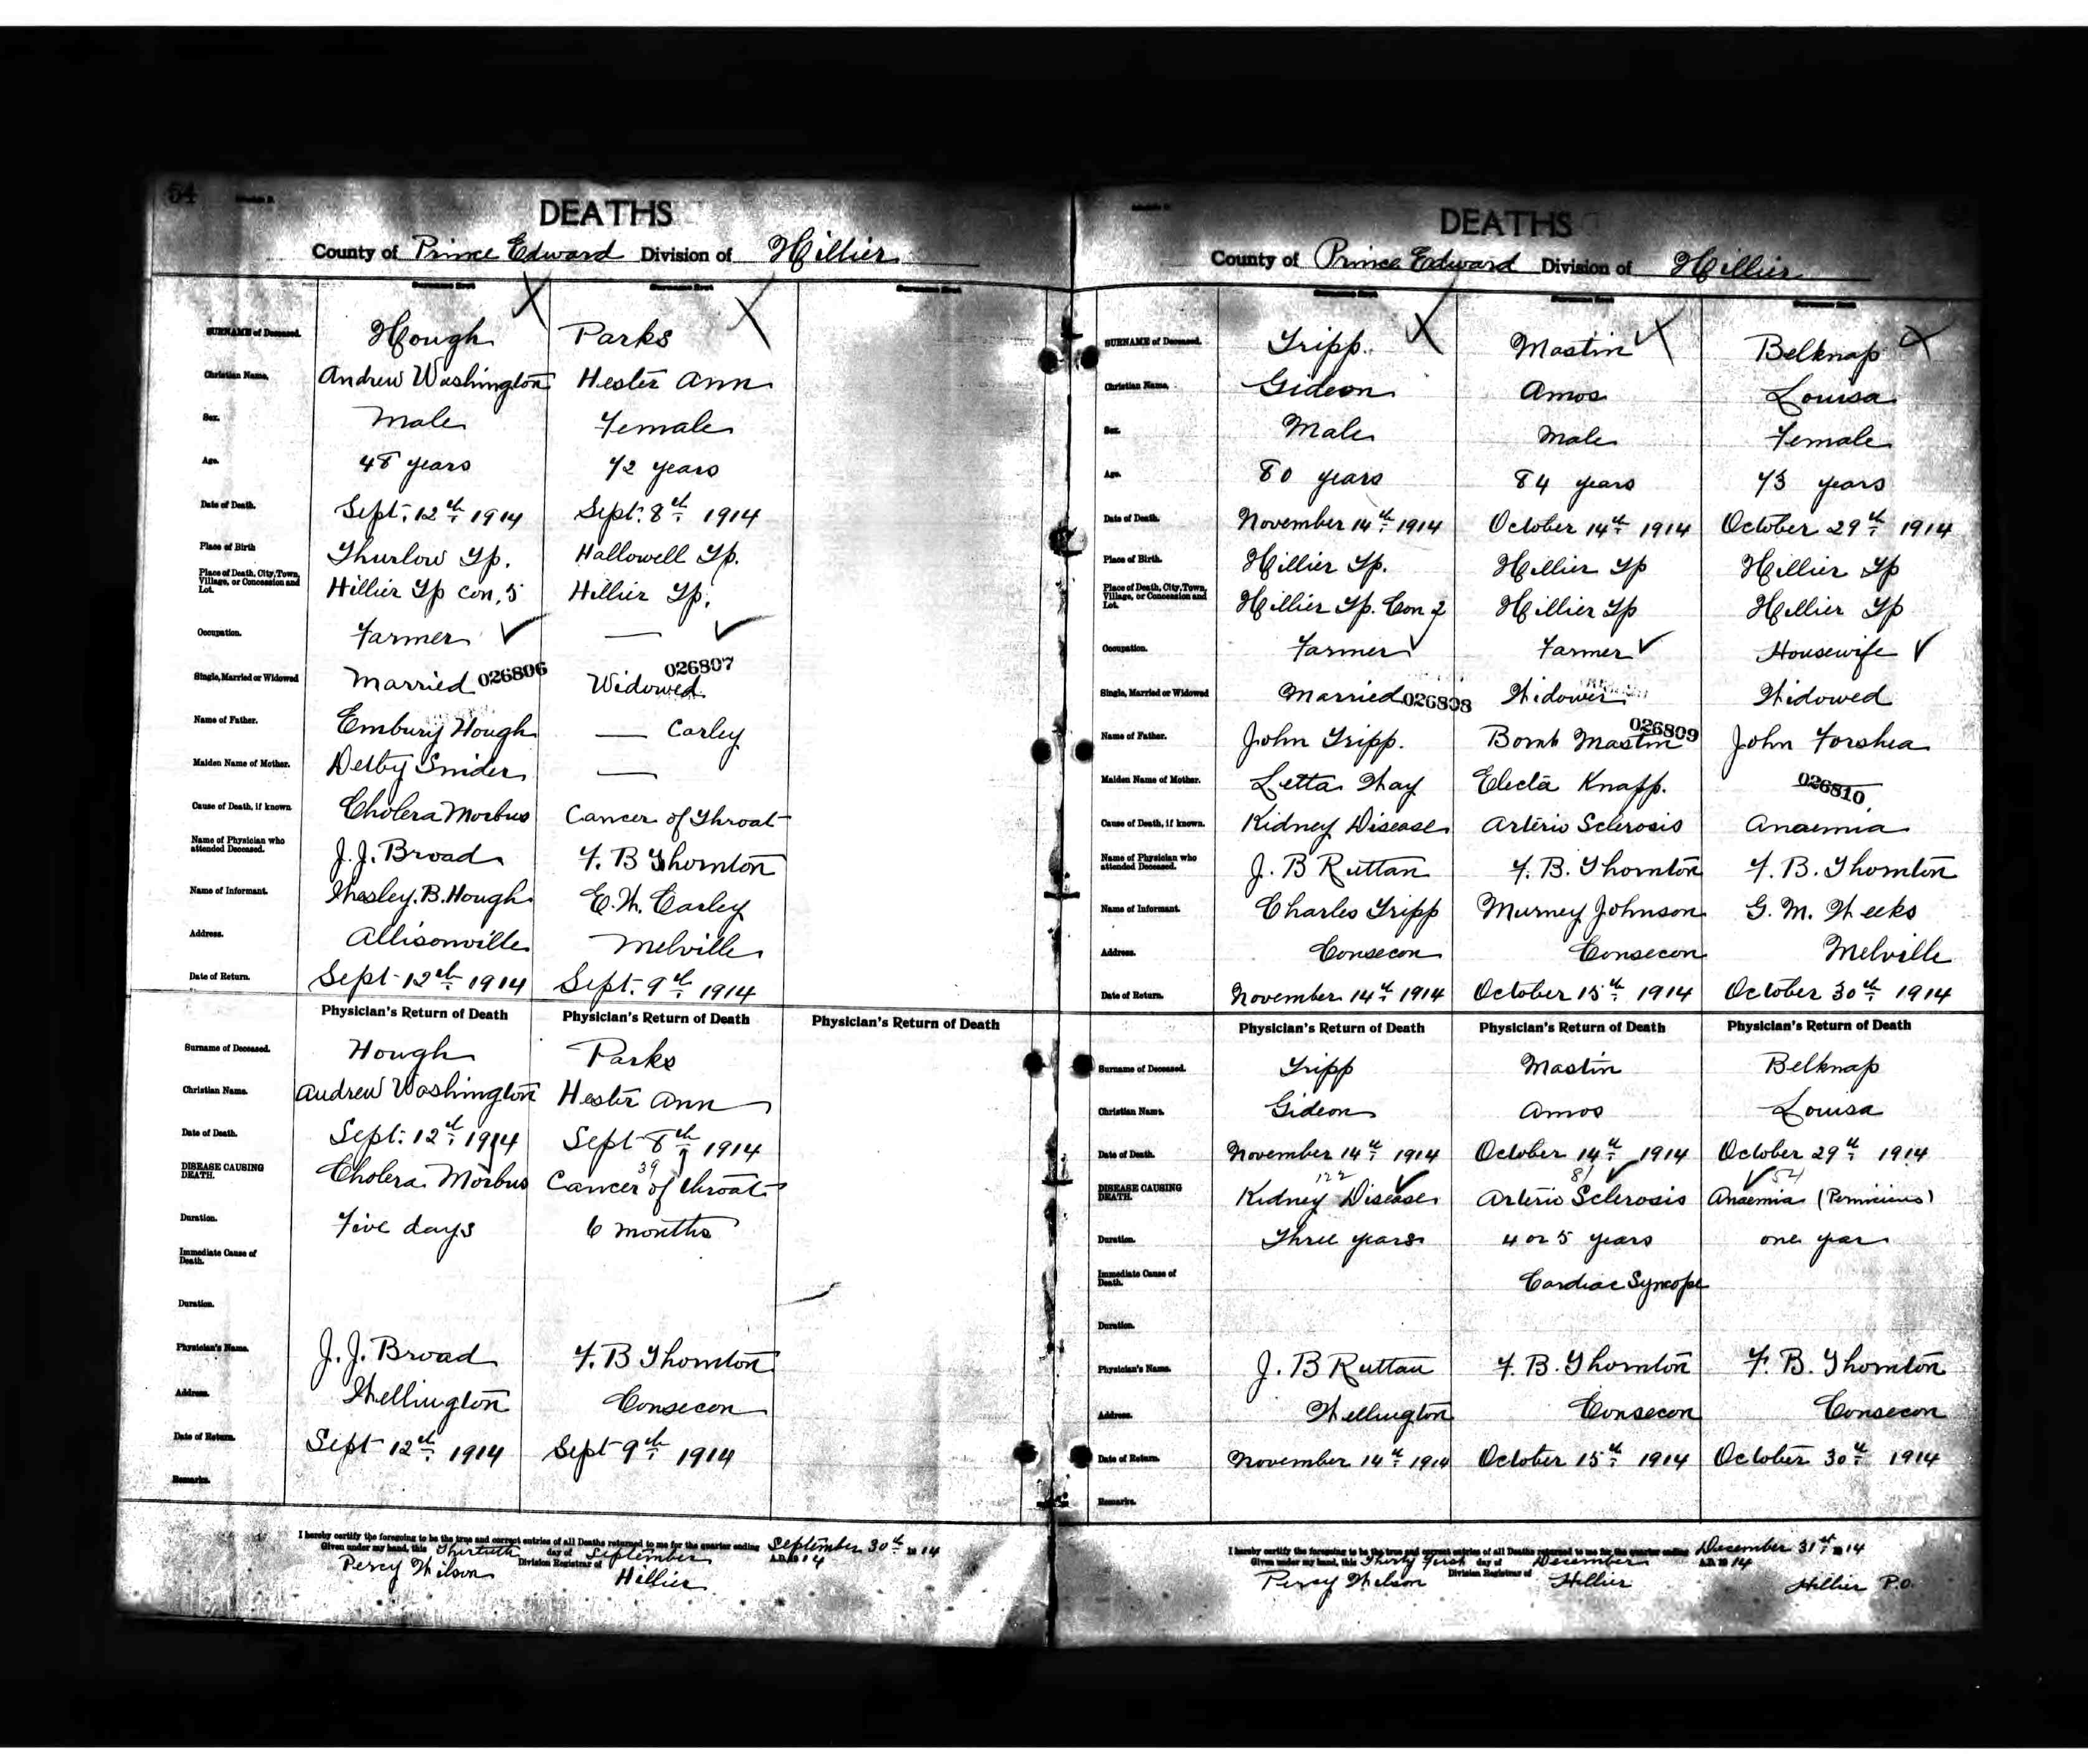 54
DEATHS
County of Prince Edward Division of Hillier
SURNAME of Deceased. Hough Parks
Christian Name. Andrew Washington Hester Ann
Sex. Male Female
Age. 48 years 72 years
Date of Death. Sept. 12th 1914 Sept. 8th 1914
Place of Birth Thurlow Tp. Hallowell Tp.
Place of Death, City, Town, Village, or Concession and Lot. Hillier Tp Con. 5 Hillier Tp.
Occupation. Farmer —
Single, Married or Widowed Married 026806 Widowed 026807
Name of Father. Embury Hough — Carley
Maiden Name of Mother. Snider —
Cause of Death, if known. Cholera Morbus Cancer of Throat
Name of Physician who attended Deceased. J. J. Broad F. B Thornton
Name of Informant. Wesley. B. Hough E. W. Carley
Address. Allisonville Melville
Date of Return. Sept 12th 1914 Sept. 9th 1914
Physician's Return of Death Physician's Return of Death Physician's Return of Death
Surname of Deceased. Hough Parks
Christian Name. Andrew Washington Hester Ann
Date of Death. Sept. 12th 1914 Sept 8th 1914
39
DISEASE CAUSING DEATH. Cholera Morbus Cancer of throat
Duration. Five days 6 months
Immediate Cause of Death.
Duration.
Physician's Name. J. J. Broad F. B Thornton
Address. Wellington Consecon
Date of Return. Sept 12th 1914 Sept 9th 1914
Remarks.
I hereby certify the foregoing to be the true and correct entries of all Deaths returned to me for the quarter ending September 30th 1914
Given under my hand, this Thirtieth day of September A.D. 1914
Percy Wilson Division Registrar of Hillier
DEATHS
County of Prince Edward Division of Hillier
SURNAME of Deceased. Tripp. Mastin Belknap
Christian Name. Gideon Amos Louisa
Sex. Male Male Female
Age. 80 years 84 years 73 years
Date of Death. November 14th 1914 October 14th 1914 October 29th 1914
Place of Birth. Hillier Tp. Hillier Tp Hillier Tp
Place of Death, City, Town, Village, or Concession and Lot. Hillier Tp. Con 2 Hillier Tp Hillier Tp
Occupation. Farmer Farmer Housewife
Single, Married or Widowed Married 026808 Widower Widowed
Name of Father. John Tripp. Mastin 026809 John Forshea
Maiden Name of Mother. Letta Way Electa Knapp. 026810
Cause of Death, if known. Kidney Disease Arterio Sclerosis Anaemia
Name of Physician who attended Deceased. J. B Ruttan F. B. Thornton F. B. Thornton
Name of Informant. Charles Tripp Murney Johnson G. M. Weeks
Address. Consecon Consecon Melville
Date of Return. November 14th 1914 October 15th 1914 October 30th 1914
Physician's Return of Death Physician's Return of Death Physician's Return of Death
Surname of Deceased. Tripp Mastin Belknap
Christian Name. Gideon Amos Louisa
Date of Death. November 14th 1914 October 14th 1914 October 29th 1914
122 81 54
DISEASE CAUSING DEATH. Kidney Disease Arterio Sclerosis Anaemia (Pernicious)
Duration. Three years 4 or 5 years one year
Immediate Cause of Death. Cardiac Syncope
Duration.
Physician's Name. J. B Ruttan F. B. Thornton F. B. Thornton
Address. Wellington Consecon Consecon
Date of Return. November 14th 1914 October 15th 1914 October 30th 1914
Remarks.
I hereby certify the foregoing to be the true and correct entries of all Deaths returned to me for the quarter ending December 31st 1914
Given under my hand, this Thirty First day of December A.D. 1914
Percy Wilson Division Registrar of Hillier Hillier P.O.